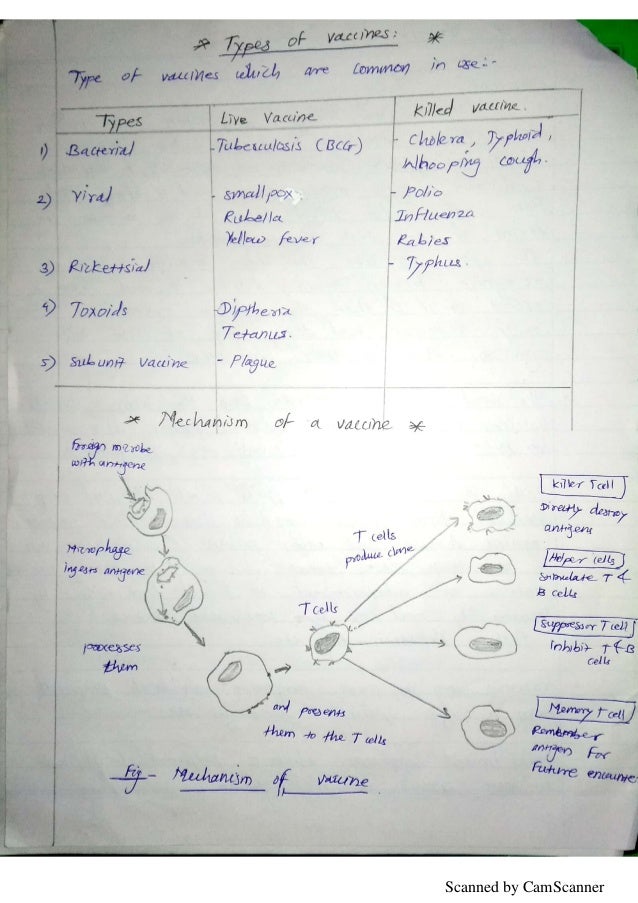 * Types of vaccines: *
Type of vaccines which are common in use:-
Types Live Vaccine Killed vaccine.
1) Bacterial - Tuberculosis (BCG) - Cholera, Typhoid,
Whooping cough.
2) Viral - smallpox - Polio
Rubella Influenza
Yellow fever Rabies
3) Rickettsial - Typhus.
4) Toxoids - Diptheria
Tetanus.
5) Subunit vaccine - Plague
* Mechanism of a vaccine *
Foreign microbe
with antigene
Microphage
ingests antigene
processes
them
and presents
them to the T cells
T cells
T cells
produce clone
Killer T cell
Directly destroy
antigens
Helper cells
Stimulate T &
B cells
Suppressor T cell
inhibit T & B
cells
Memory T cell
Remember
antigen for
future encounte
Fig - Mechanism of vaccine
Scanned by CamScanner